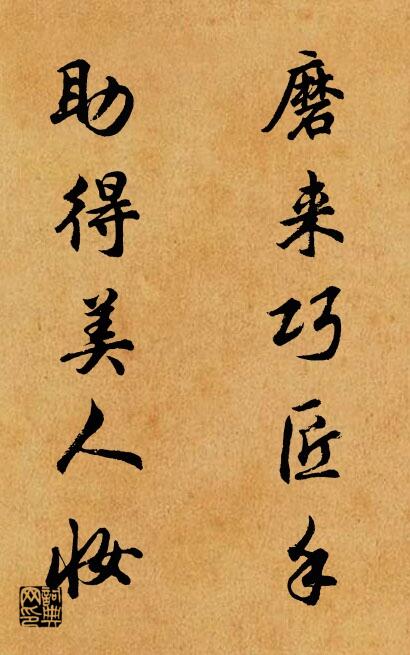 磨来巧匠手
助得美人妆
詞典网印